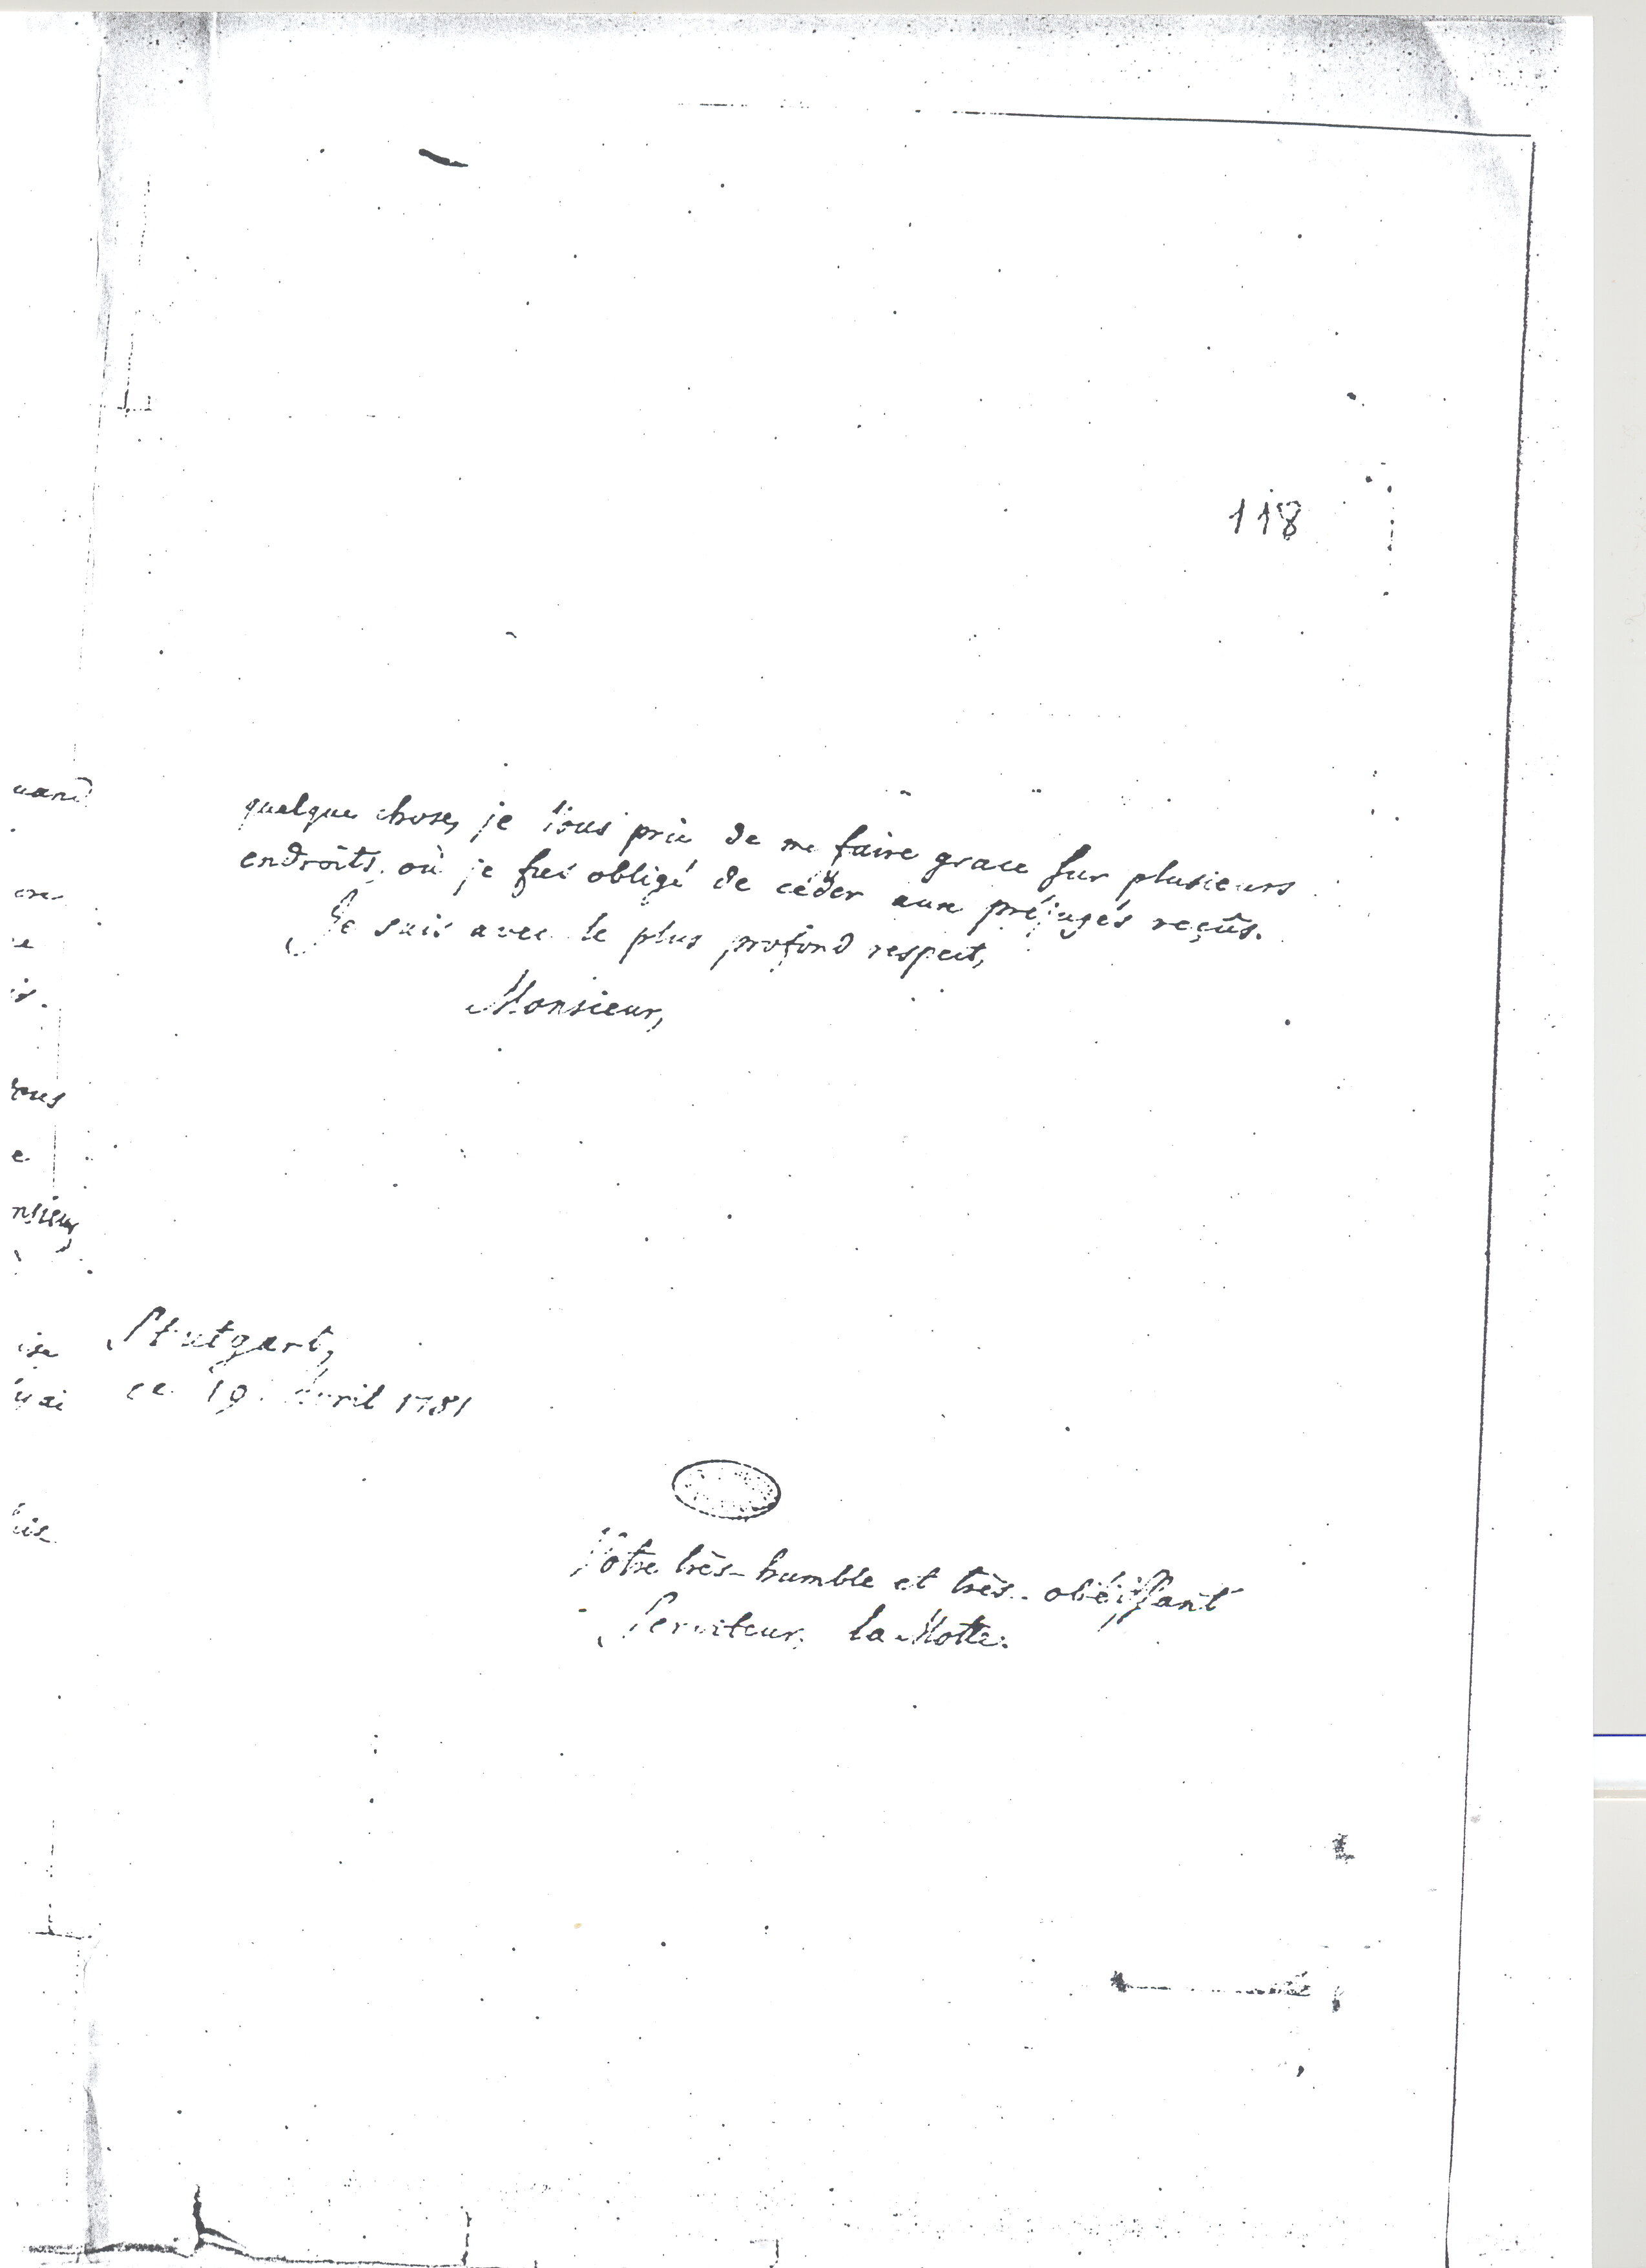 118
quelque chose, je Vous prie de me faire grace sur plusieurs
endroits, où je fus obligé de céder aux préjugés reçûs.
Je suis avec le plus profond respect,
Monsieur,
Stutgart,
ce 19. Avril 1781
Votre très-humble et très-obéissant
Serviteur. la Motte.